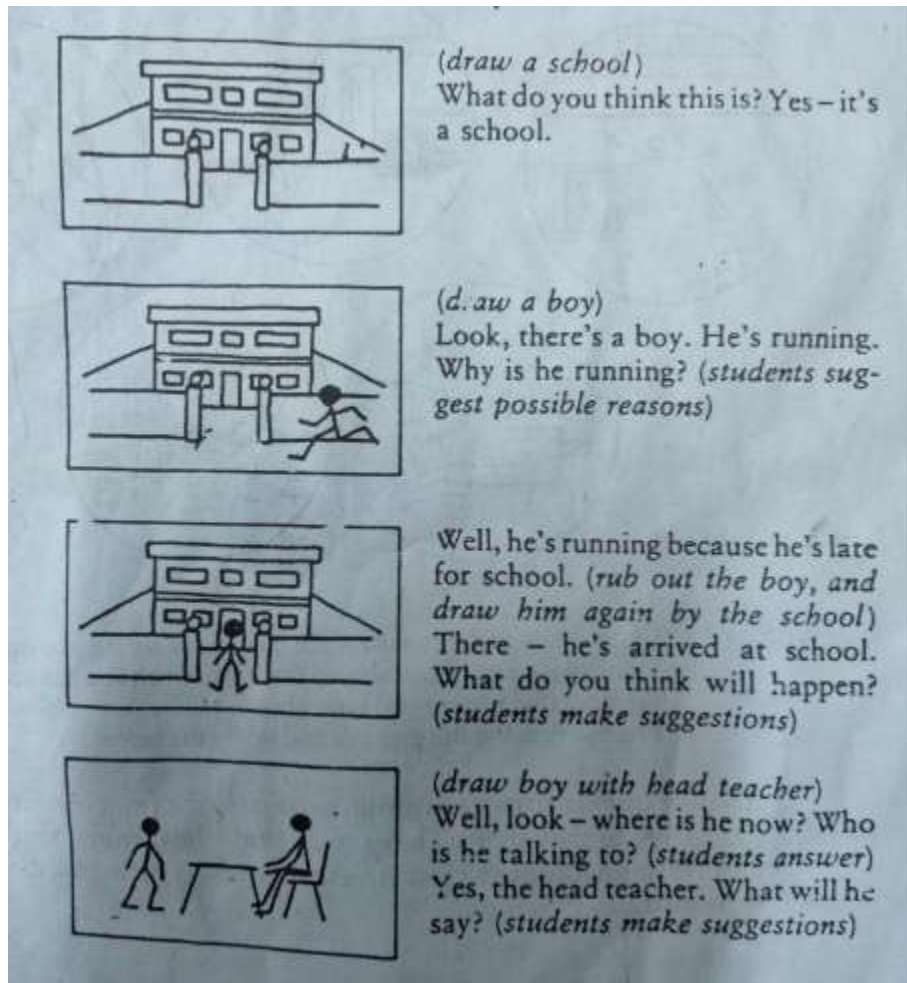 (draw a school)
What do you think this is? Yes – it's
a school.
(d. aw a boy)
Look, there's a boy. He's running.
Why is he running? (students sug-
gest possible reasons)
Well, he's running because he's late
for school. (rub out the boy, and
draw him again by the school)
There – he's arrived at school.
What do you think will happen?
(students make suggestions)
(draw boy with head teacher)
Well, look – where is he now? Who
is he talking to? (students answer)
Yes, the head teacher. What will he
say? (students make suggestions)